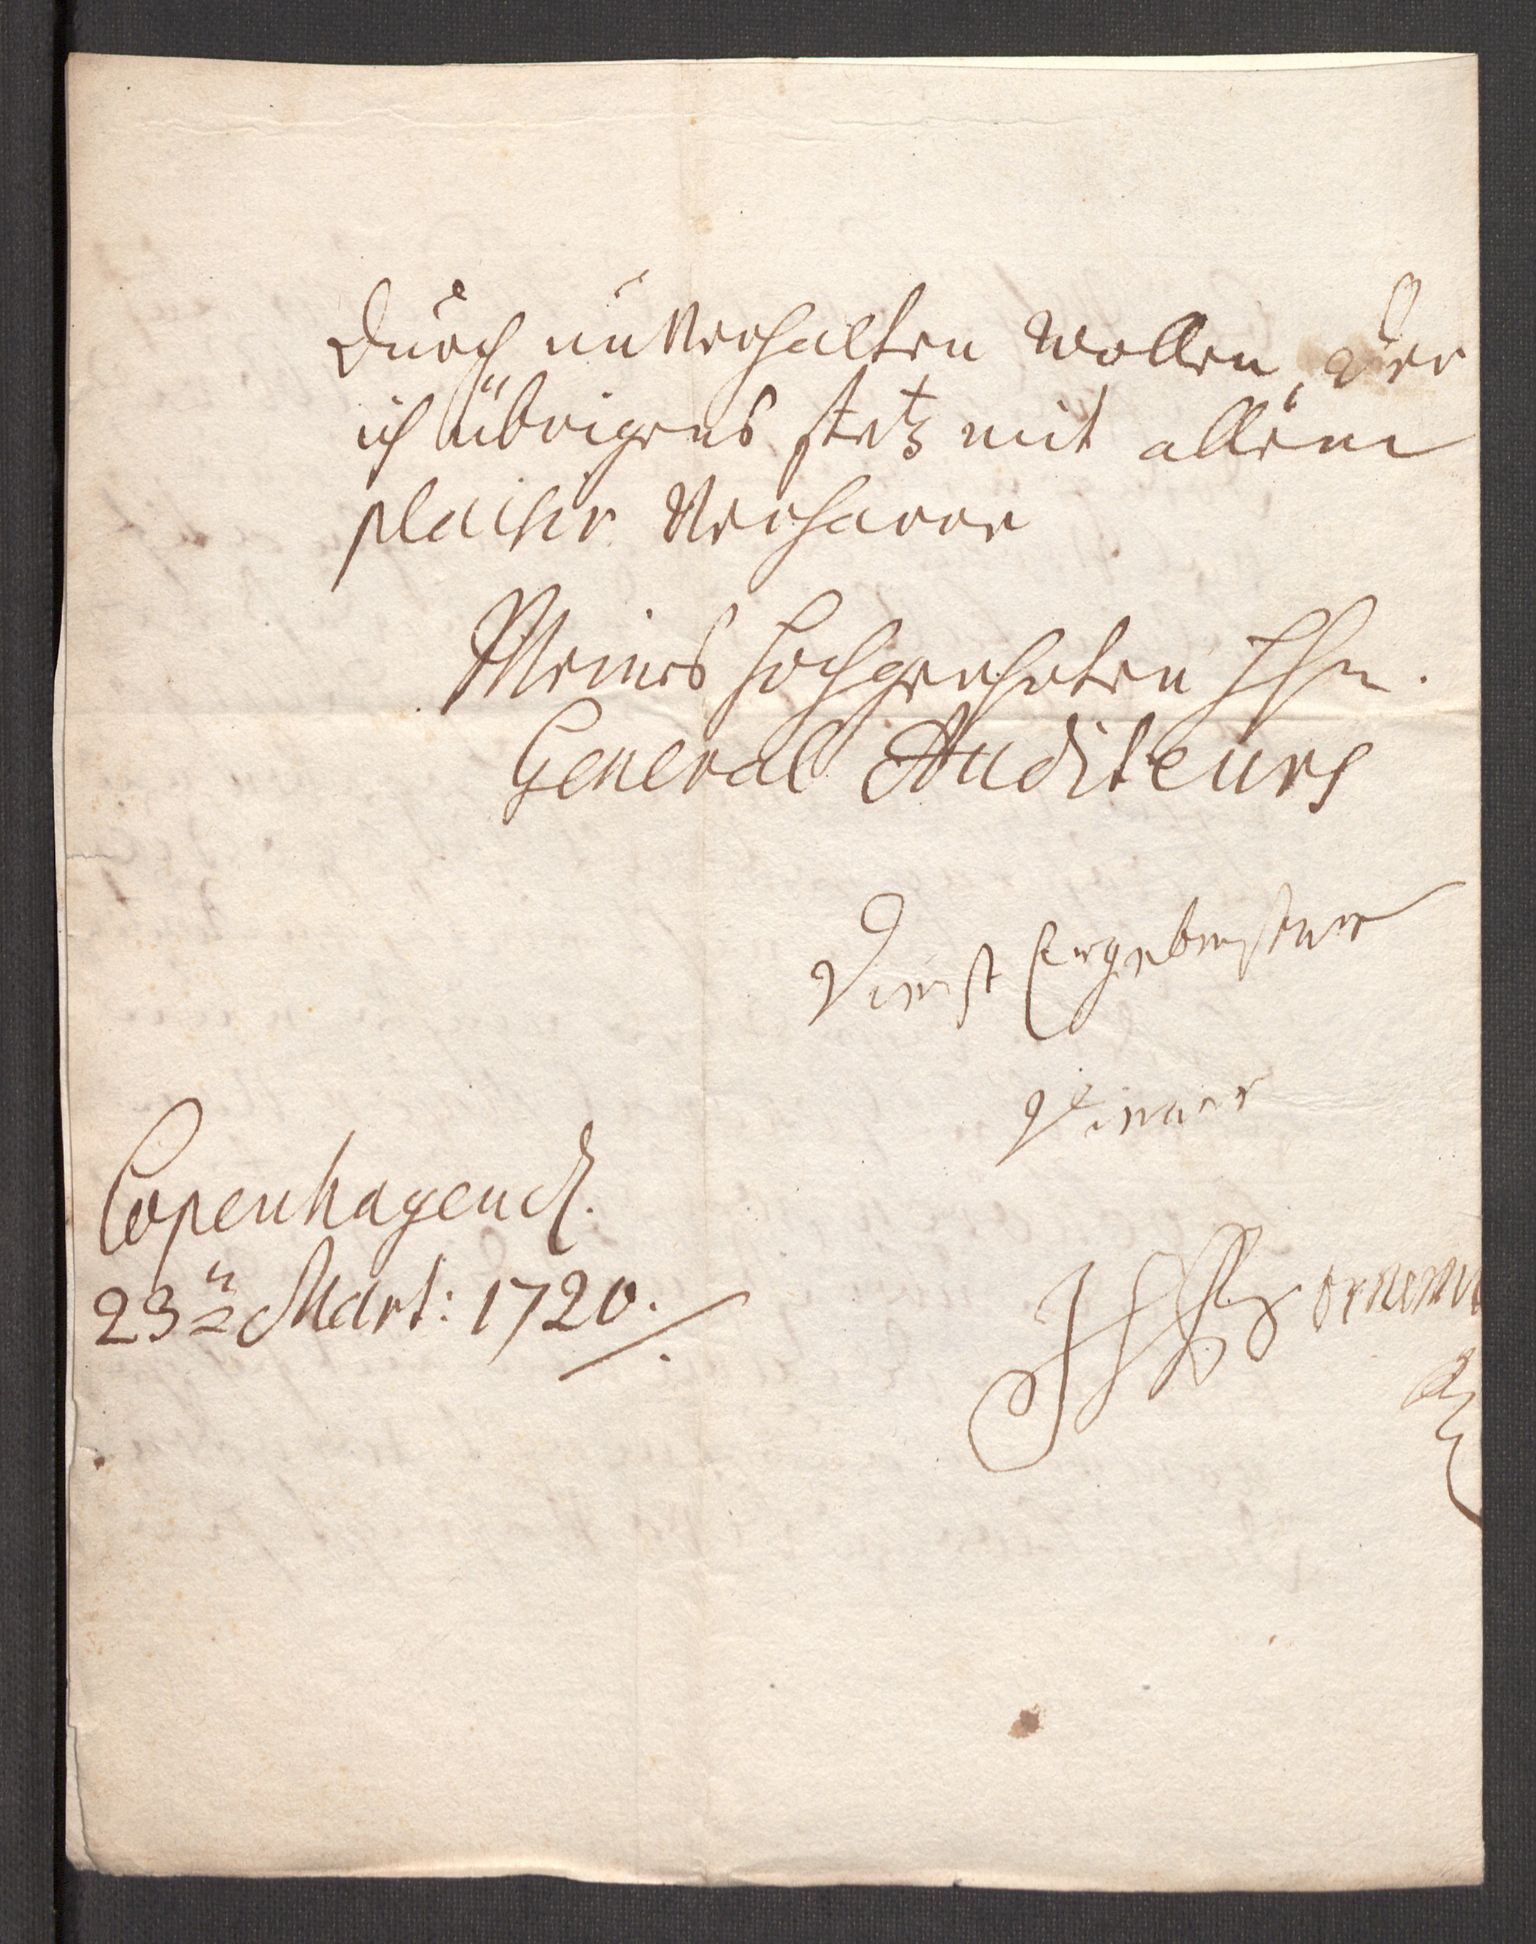 durch unverhalten wollen, der
ich übrigens stetz mit allem
plaisir verharre
Meines hochgeehrten Hhn.
General Auditeurs
Dienst Ergebenster
Diener
Copenhagen d.
23n Mart: 1720.